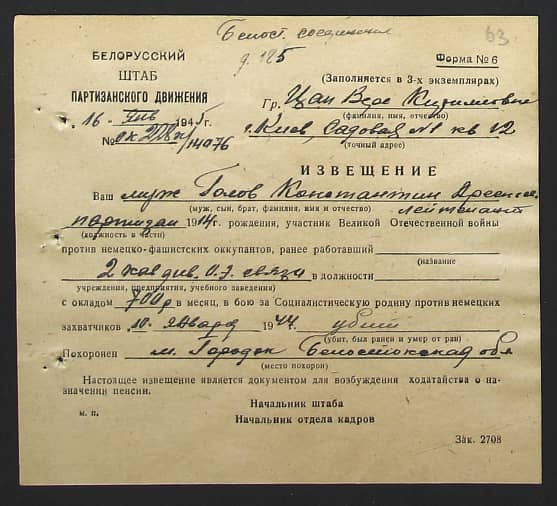 Белост. соединение
д. 125
63
БЕЛОРУССКИЙ
ШТАБ
ПАРТИЗАНСКОГО ДВИЖЕНИЯ
Форма № 6
(Заполняется в 3-х экземплярах)
„16" янв 1945 г.
№
Гр. Цап Вере
(фамилия, имя, отчество)
г. Киев, Садовая №1 кв 12
(точный адрес)
ИЗВЕЩЕНИЕ
Ваш муж Голов Константин
(муж, сын, брат, фамилия, имя и отчество) лейтенант
партизан 1914 г. рождения, участник Великой Отечественной войны
(должность в части)
против немецко-фашистских оккупантов, ранее работавший
(название
2 кав див. О.Э. связи в должности
учреждения, предприятия, учебного заведения)
с окладом 700 р в месяц, в бою за Социалистическую родину против немецких
захватчиков 10 января 1944 убит
(убит, был ранен и умер от ран)
Похоронен м. Городок Белостокская обл
(место похорон)
Настоящее извещение является документом для возбуждения ходатайства о на-
значении пенсии.
Начальник штаба
м. п.
Начальник отдела кадров
Зак. 2708